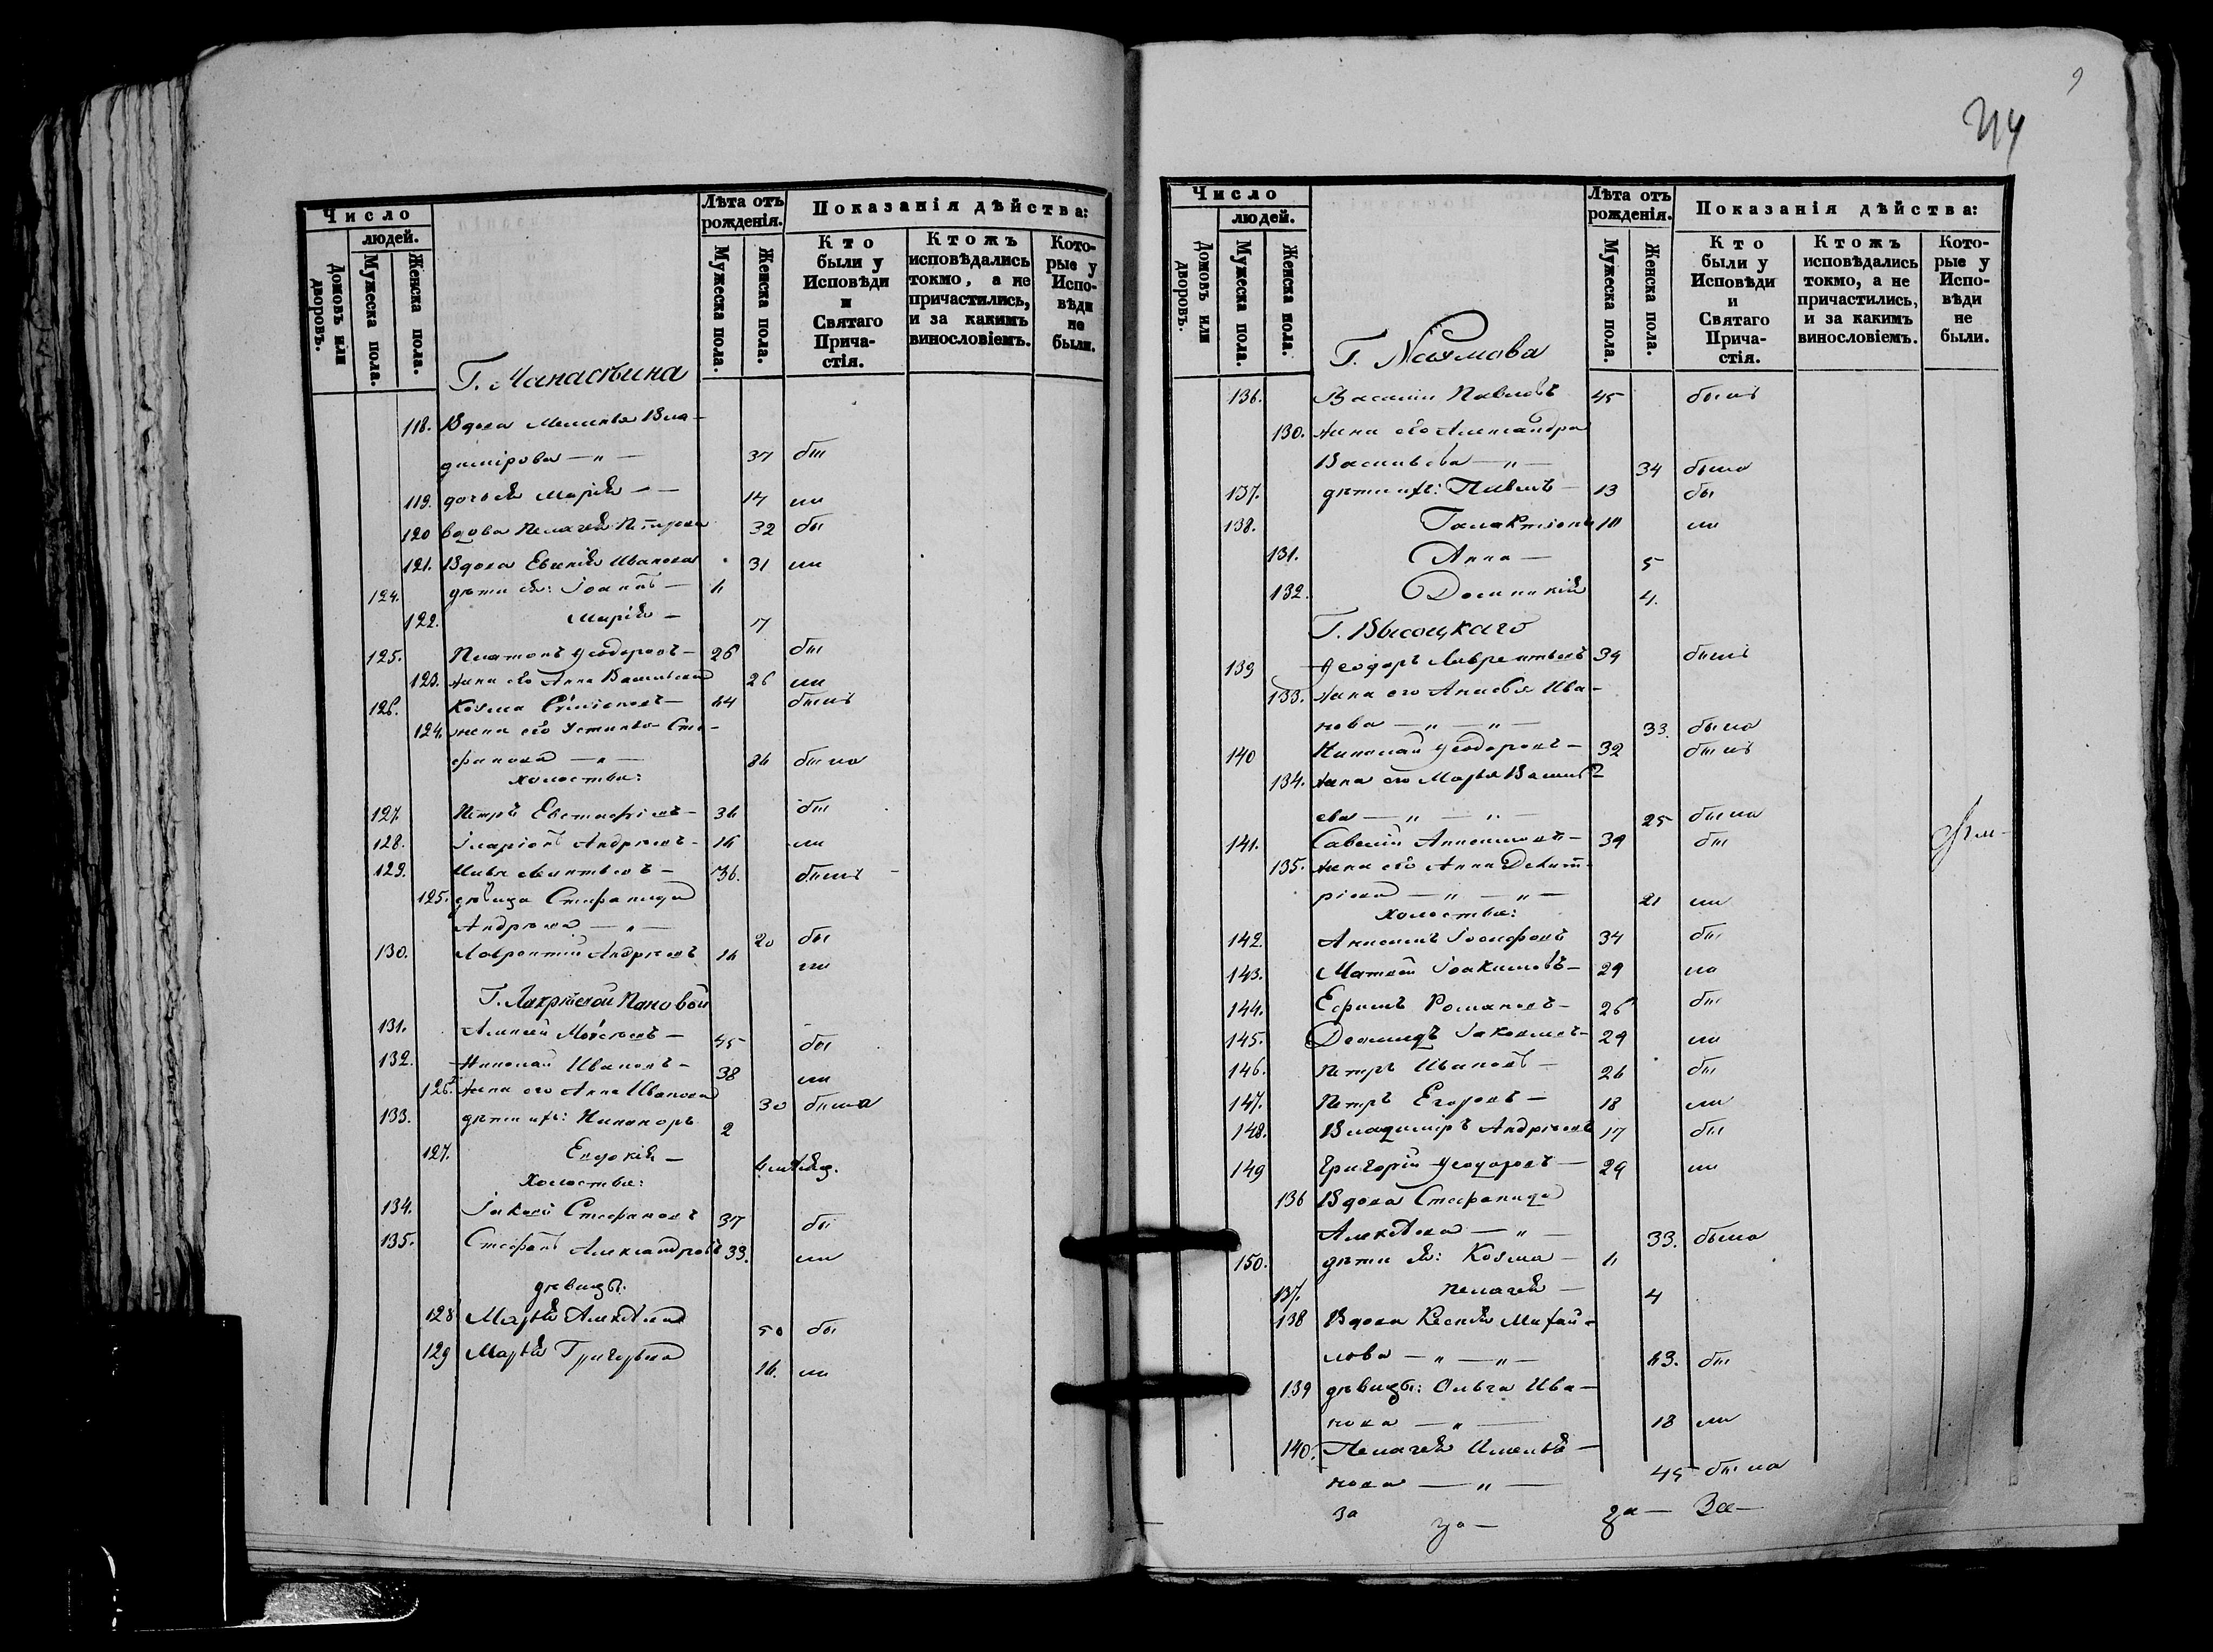 Число
людей.
Домовъ или дворовъ.
Мужеска пола.
Женска пола.
Лѣта отъ рожденія.
Мужеска пола.
Женска пола.
Показанія дѣйства:
Кто были у Исповѣди и Святаго Причастія.
Ктожъ исповѣдались токмо, а не причастились, и за какимъ винословіемъ.
Которые у Исповѣди не были.
Г. Манастына
118. Вдова Меланія Вла-
димірова — " — 37 бы
119. дочь ея Марія — — 14 ли
120 вдова Пелагея Петрова 32 бы
121. Вдова Евгенія Иванова 31 ли
124. дѣти ея: Іоаннъ — 11
122. Марія — 7
125. Платонъ Ѳеодоровъ — 26 бы
123. жена его Анна Васильева 26 ли
126. Козма 44 былъ
124. жена его Устинья Сте-
фанова — " — была
холостые:
127. Петръ Евстафіевъ — 36 бы
128. Иларіонъ Андреевъ — 16 ли
129. 36. былъ
125. дѣвица Стефанида
Андреева — " — 20 бы
130. Лаврентій Андреевъ 16 ли
Г. Пановой
131. Алексѣй Моѵсеевъ — 45 бы
132. Николай Ивановъ — 38 ли
126. жена его Анна Иванова 30 была
133. дѣти ихъ: Никаноръ 2
127. Евдокія —
Холостые:
134. Іаковъ Стефановъ 37 бы
135. Стефанъ Александровъ 33. ли
дѣвицы:
128 Марья Алексѣева 50 бы
129 Марья Григорьева 16. ли
9
Число
людей.
Домовъ или дворовъ.
Мужеска пола.
Женска пола.
Лѣта отъ рожденія.
Мужеска пола.
Женска пола.
Показанія дѣйства:
Кто были у Исповѣди и Святаго Причастія.
Ктожъ исповѣдались токмо, а не причастились, и за какимъ винословіемъ.
Которые у Исповѣди не были.
Г. Наумова
136. Василій Павловъ 45 былъ
130. жена его Александра
Васильева — " — 34 была
137. дѣти ихъ: Павелъ — 13 бы
138. Галактіонъ ли
131. Анна — 5
132. Домникія 4.
Г. Высоцкаго
139 Ѳеодоръ Лаврентьевъ 34 былъ
133. жена его Анисья Ива-
нова — " — " — 33. была
140 Николай Ѳеодоровъ — 32 былъ
134. жена его Марья Василь-
ева — " — " — 25 была
141. Савелій 39 бы
135. жена его Анна Димит-
ріева — " — " — 21 ли
холостые:
142. Анисимъ Іосифовъ 34 бы
143. Матвей Іоакимовъ — 29 ла
144. Ефимъ Романовъ — 26 бы
145. Деомидъ Іаковлевъ — 29 ли
146. Петръ Ивановъ — 26 бы
147. Петръ Егоровъ — 18 ли
148. Владиміръ Андреевъ 17 бы
149 Григорій Ѳеодоровъ — 29 ли
136 Вдова Стефанида
Алексѣева — " — 33. была
150. дѣти ея: Козма — 11
137. Пелагея — 4
138 Вдова Ксенія Михай-
лова — " — " — 43. бы
139 дѣвицы: Ольга Ива-
нова — " — 18 ли
140. Пелагея
нова — " — 45 была
За За — За — За —